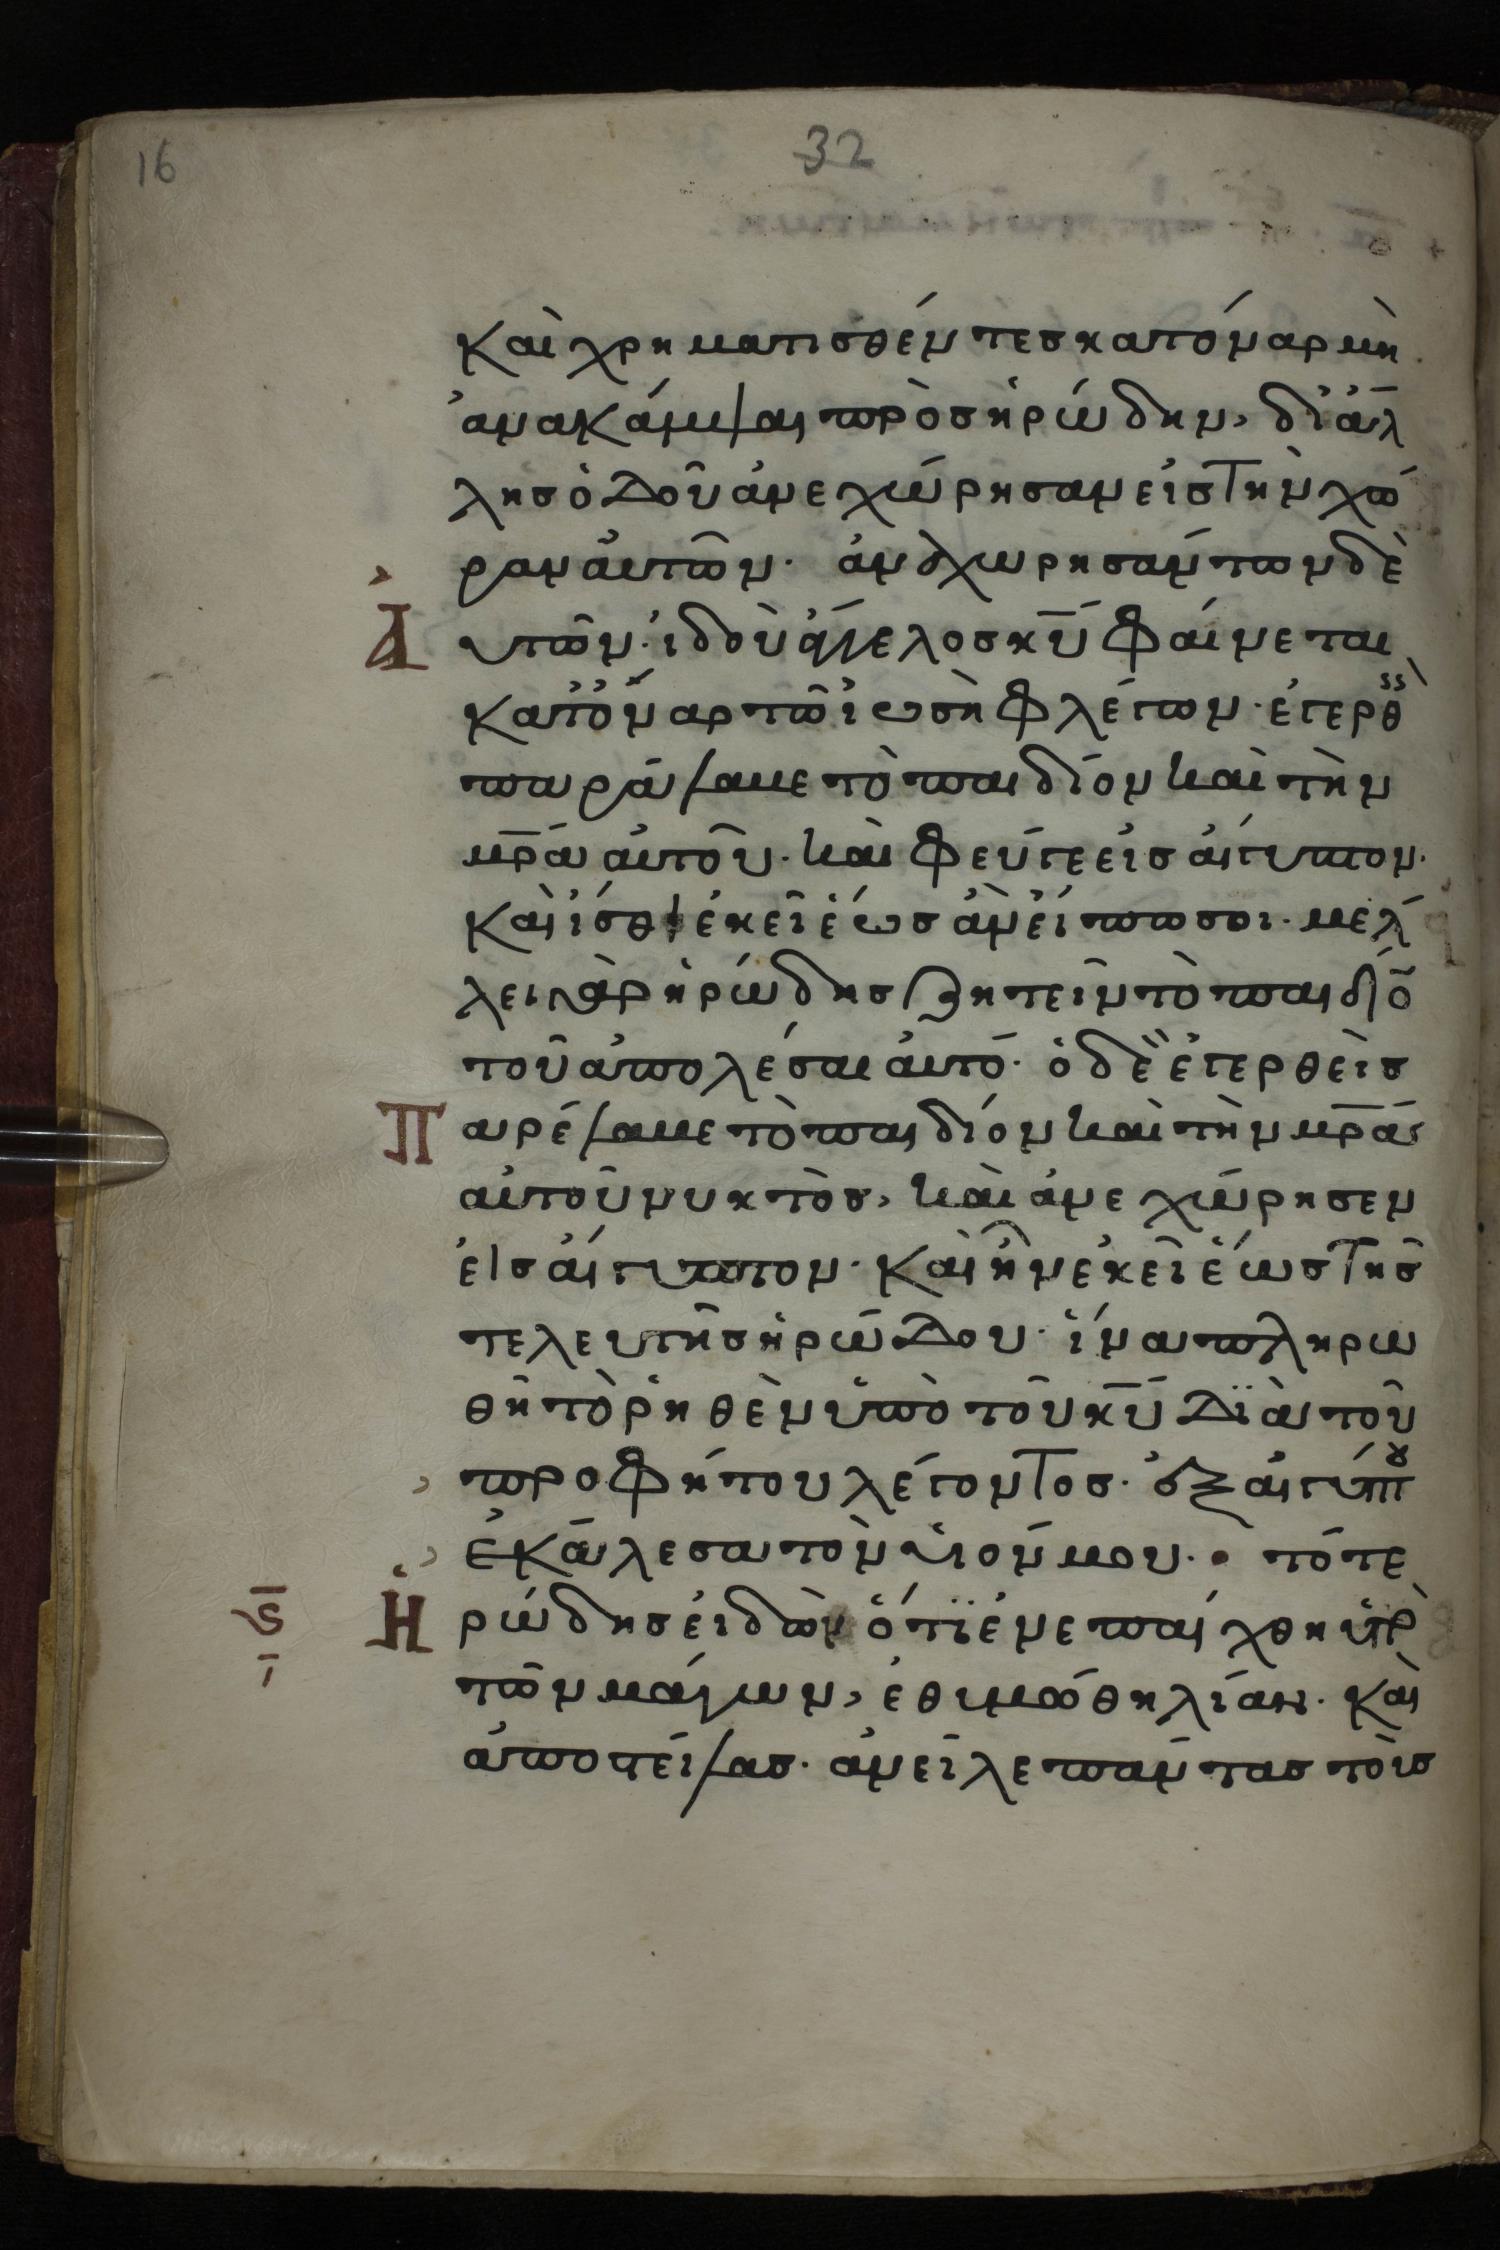 16
32
καὶ χρηματισθέντες κατόναρ μὴ
ἀνακάμψαι πρὸς ἡρώδην, δι' ἄλ
λης ὁδοῦ ἀνεχώρησαν εἰς τὴν χώ
ραν αὐτῶν. ἀναχωρησάντων δὲ
Ἀυτῶν. ἰδοὺ ἄγγελος κ̅υ̅ φαίνεται
κατόναρ τῶ ἰωσὴφ λέγων. ἐγερθεὶς
παράλαβε τὸ παιδίον καὶ τὴν
μ̅ρ̅α̅ αὐτοῦ. καὶ φεῦγε εἰς αἴγυπτον.
καὶ ἴσθι ἐκεῖ ἕως ἂν εἴπω σοι. μέλ
λει γὰρ ἡρώδης ζητεῖν τὸ παιδίο
τοῦ ἀπολέσαι αὐτό. ὁ δὲ ἐγερθεὶς
Παρέλαβε τὸ παιδίον καὶ τὴν μ̅ρ̅α̅
αὐτοῦ νυκτὸς, καὶ ἀνεχώρησεν
εἰς αἴγυπτον. καὶ ἦν ἐκεῖ ἕως τῆς
τελευτῆς ἡρώδου. ἵνα πληρω
θῆ τὸ ῥηθὲν ὑπὸ τοῦ κ̅υ̅ διὰ τοῦ
προφήτου λέγοντος. ἐξ αἰγύπτου
ἐκάλεσα τὸν υἱόν μου. · τότε
ς̅ ι̅
Ἡρώδης εἰδὼν ὅτι ἐνεπαίχθη ὑπὸ
τῶν μάγων, ἐθυμώθη λίαν. καὶ
ἀποστείλας. ἀνεῖλε πάντας τοὺς